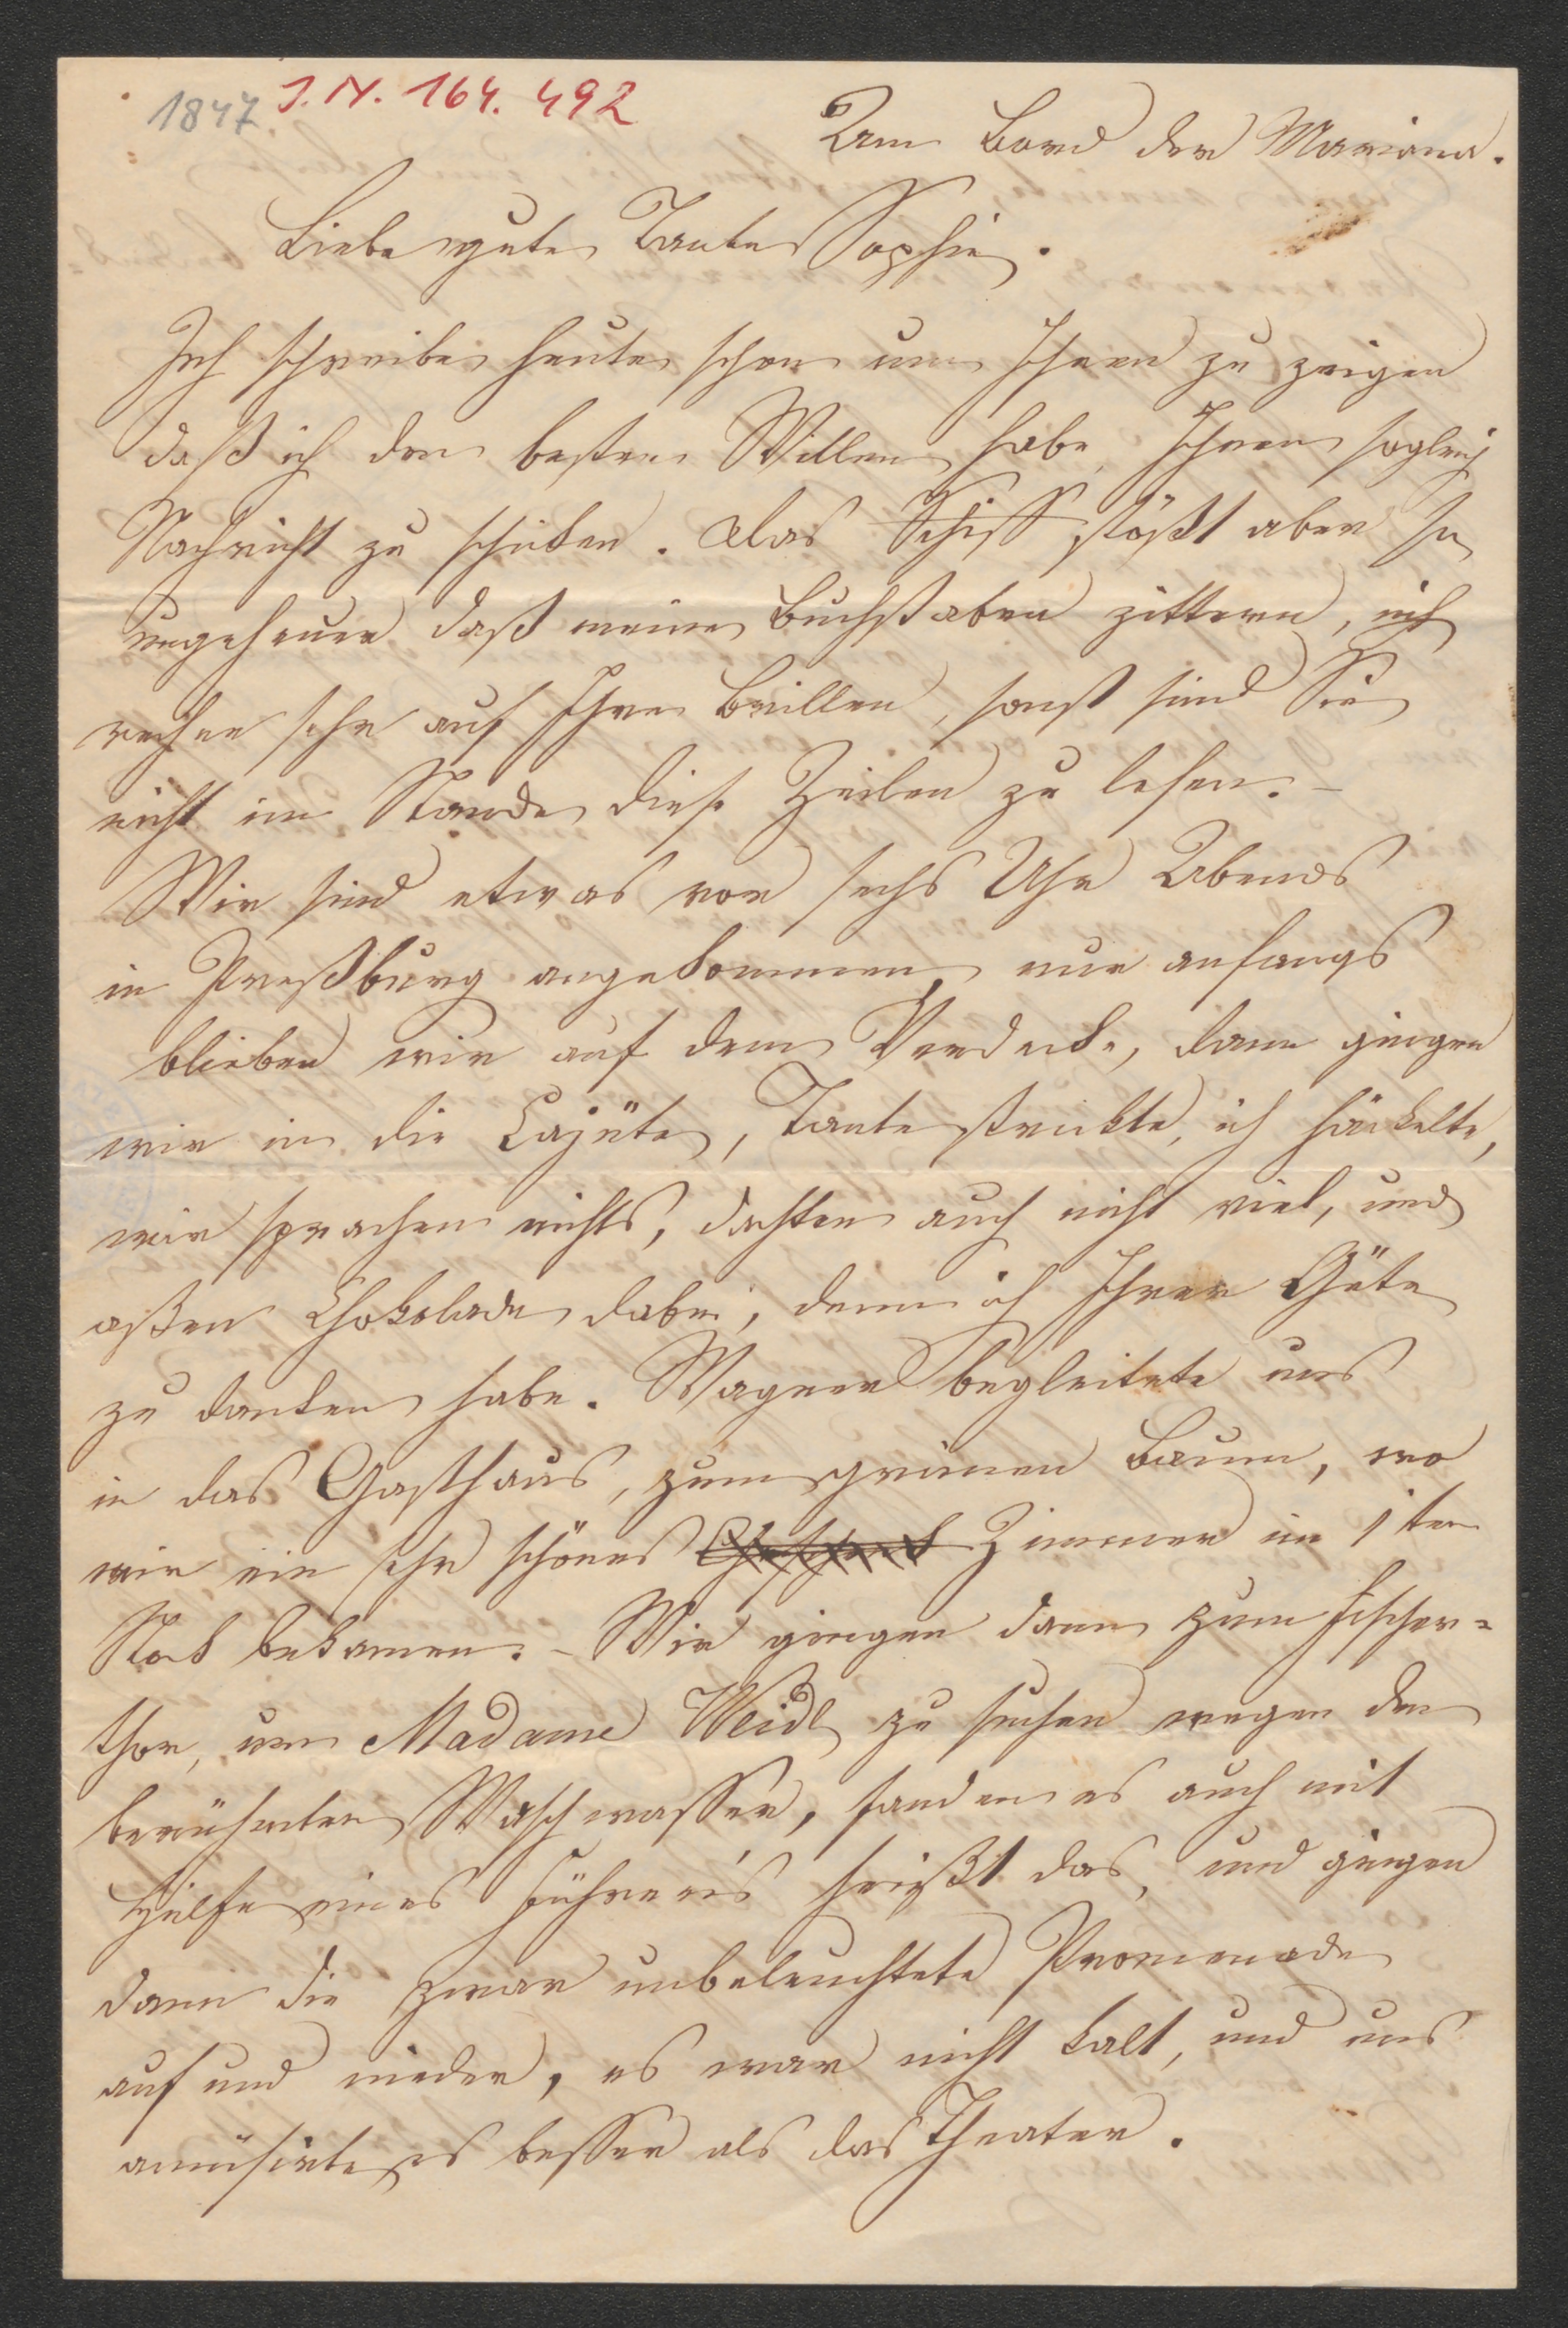 1847 I.N. 164.492
Am Bord der Mariana.
Liebe gute Tante Sophie.
Ich schreibe heute schon um Ihnen zu zeigen
daß ich den besten Willen habe Ihnen sogleich
Nachricht zu schicken. Das Schiff stößt aber so
ungeheuer daß meine Buchstaben zittern, ich
rechne sehr auf Ihre Brillen, sonst sind Sie
nicht im Stande diese Zeilen zu lesen. –
Wir sind etwas vor sechs Uhr Abends
in Preßburg angekommen, nur anfangs
blieben wir auf dem Verdecke, dann gingen
wir in die Cajüte, Tante strickte, ich häckelte,
wir sprachen nichts, dachten auch nicht viel, und
aßen Chokolade dabei, denn ich Ihrer Güte
zu danken habe. Wagner begleitete uns
in das Gasthaus, zum grünen Baum, wo
wir ein sehr schönes Zimmer im 1ten
Stock bekamen. – Wir gingen dann zum Fischer=
thor, um Madame Weidl zu suchen wegen den
berühmten Waschwasser, fanden es auch mit
Hülfe eines Führer's heißt das, und gingen
dann die zwar unbeleuchtete Promenade
auf und nieder, es war nicht kalt, und uns
amüsirte es besser als das Theater.